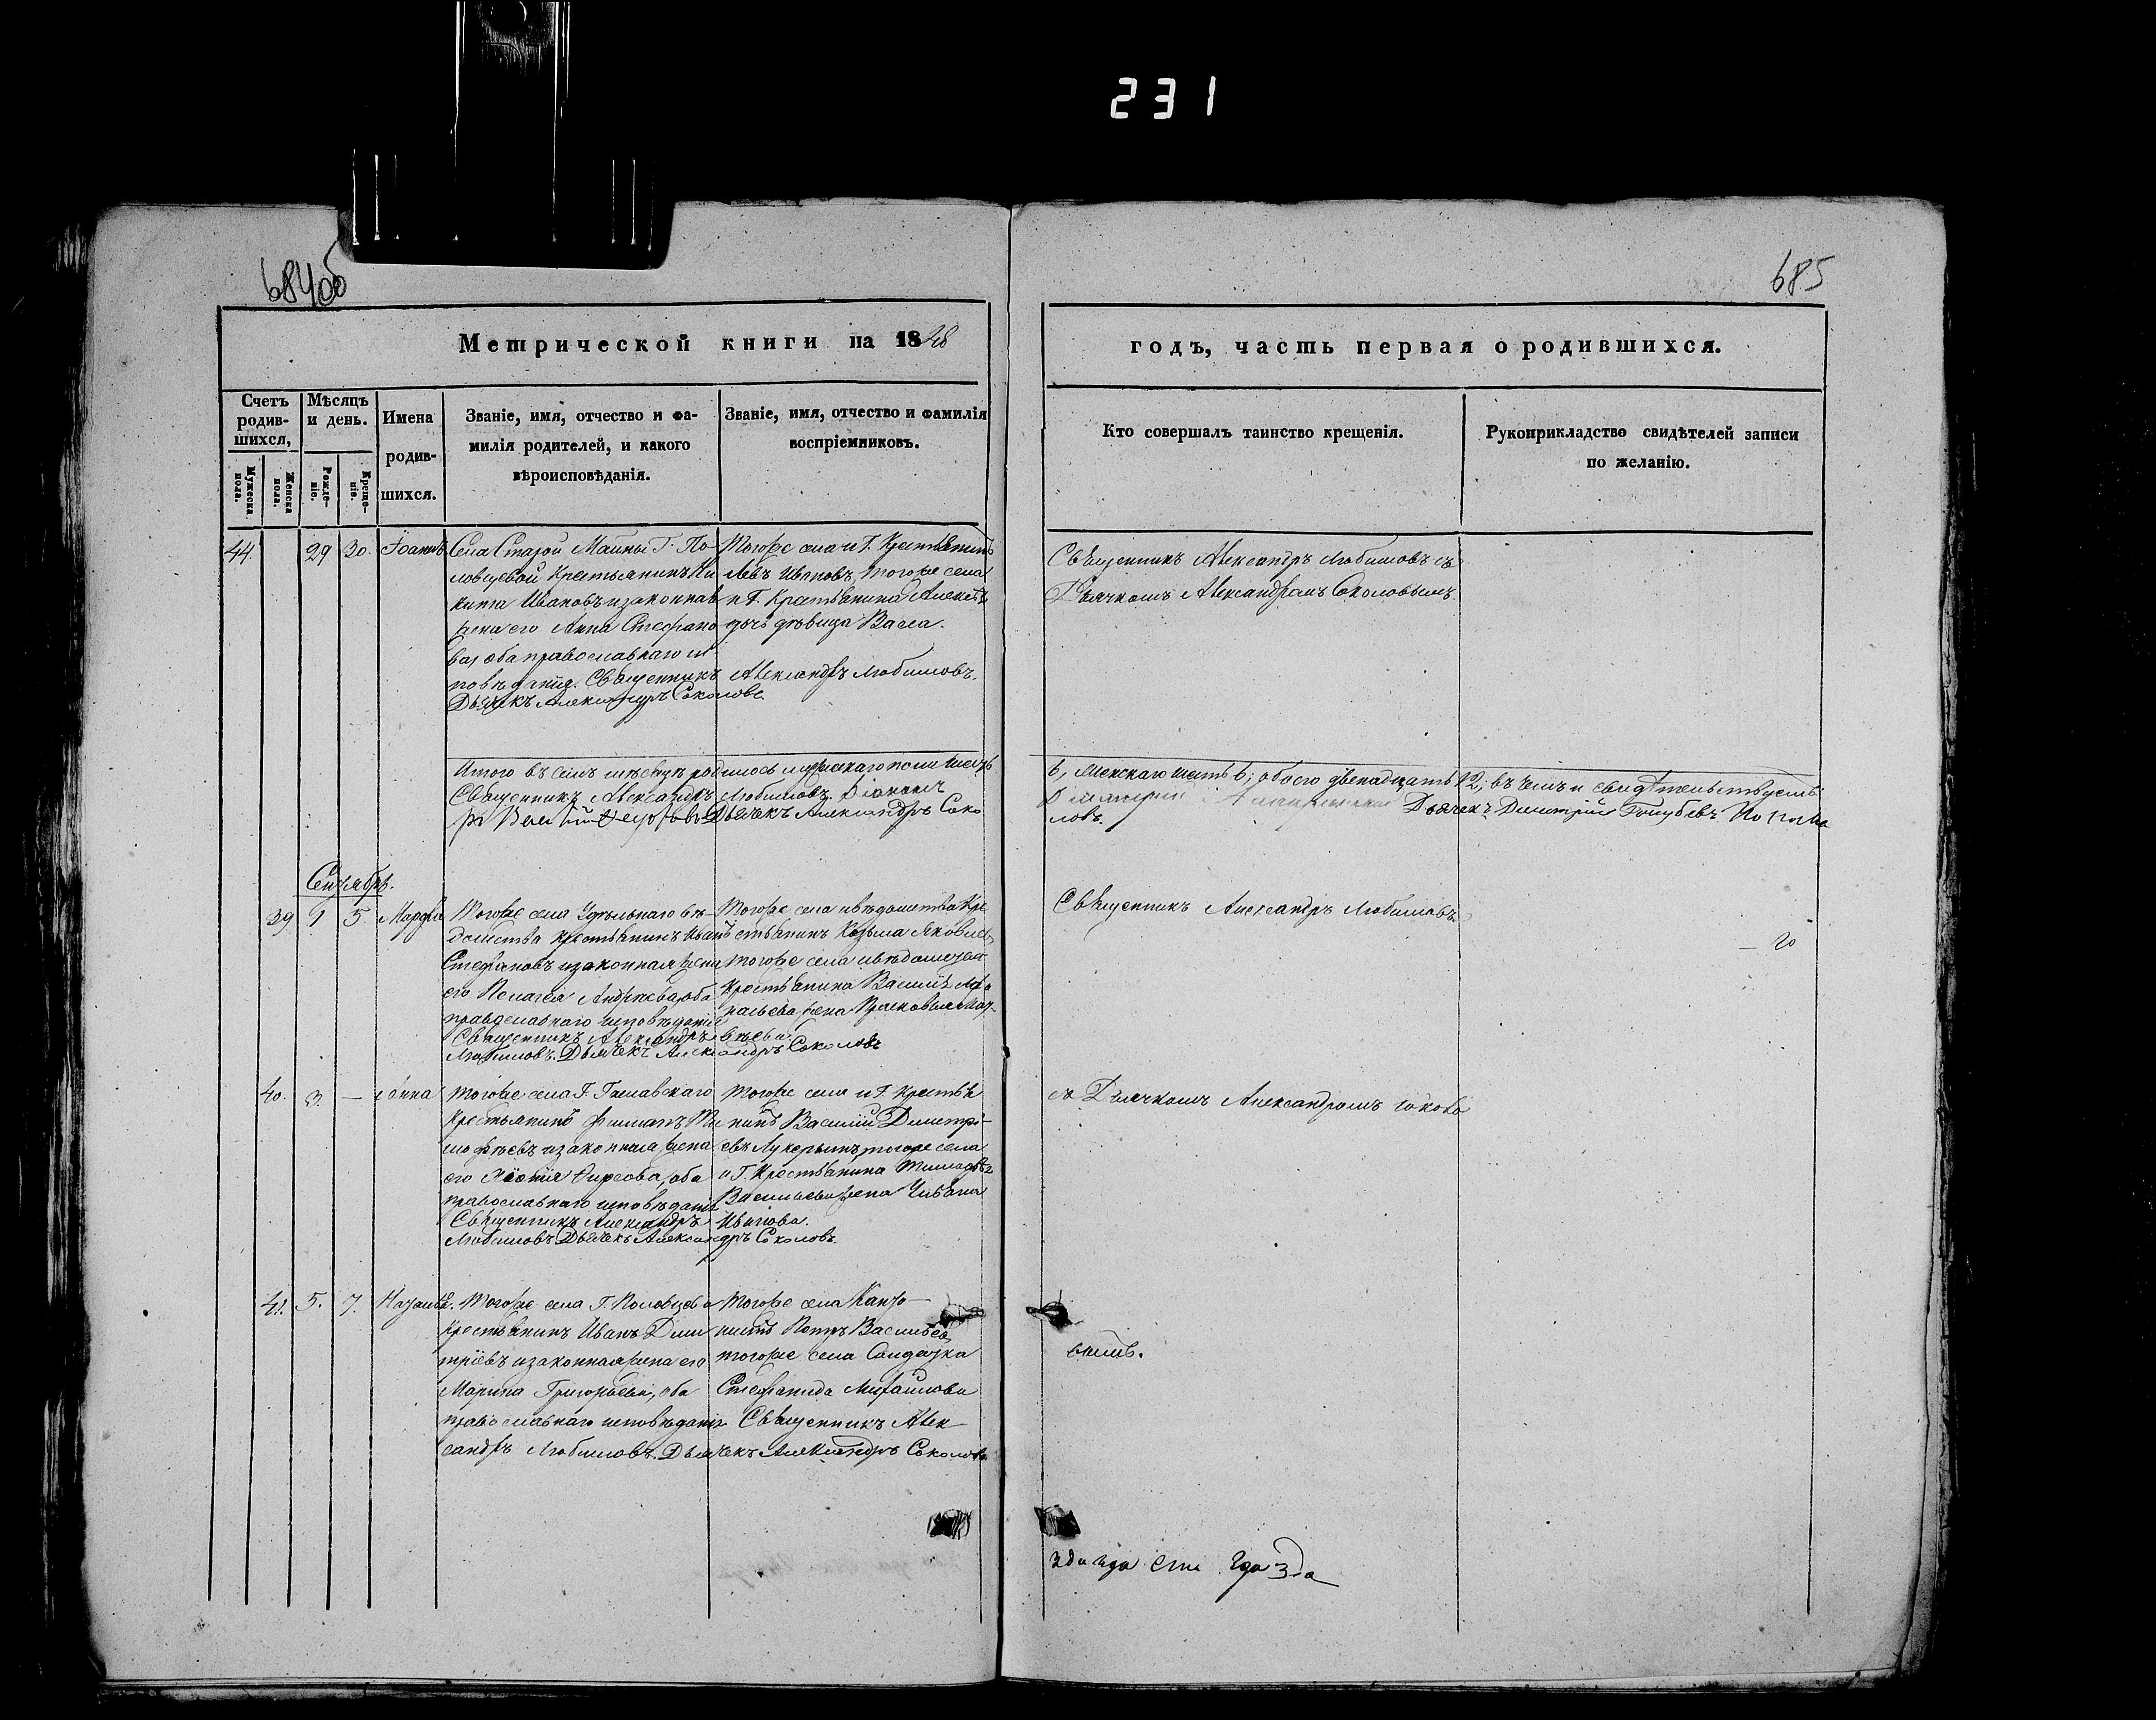 231
684об
685
Метрической книги на 1848
годъ, часть первая о родившихся.
Счетъ родив-шихся,
Мужеска пола.
Женска пола.
Мѣсяцъ и день.
Рожде-ніе.
Креще-ніе.
Имена
родив-
шихся.
Званіе, имя, отчество и фа-
милія родителей, и какого
вѣроисповѣданія.
Званіе, имя, отчество и фамилія
воспріемниковъ.
Кто совершалъ таинство крещенія.
Рукоприкладство свидѣтелей записи
по желанію.
44. 29 30. Іоаннъ
Села Старой Майны Г. По-
ловцевой Крестьянинъ Ни
кита Ивановъ и законная
жена его Анна Стефано
ва, оба православнаго ис
повѣданія. Священникъ Александръ Любимовъ.
Дьячекъ Александръ Соколовъ.
Тогоже села и Г. Крестьянинъ
Левъ Ивановъ, тогоже села
и Г. Крестьянина Алексѣя
дочь дѣвица Васса.
Священникъ Александръ Любимовъ съ
Дьячкомъ Александромъ Соколовымъ.
Итого въ семъ мѣсяцѣ родилось мужескаго пола шесть
6, женскаго шесть 6; обоего двенадцать 12; въ чемъ и свидѣтельствуемъ
Священникъ Александръ Любимовъ. Діаконъ
Дьячекъ Александръ Соко
ловъ.
Дьячекъ Димитрій Голубевъ
Сентябрь.
39 1 5. Марфа
Тогоже села Удѣльнаго вѣ-
домства Крестьянинъ Иванъ
Стефановъ и законная жена
его Пелагея Андреева, оба
православнаго исповѣданія
Священникъ Александръ
Любимовъ. Дьячекъ Александръ Соколовъ
Тогоже села и вѣдомства Кре
стьянинъ Козьма Яковлевъ,
тогоже села и вѣдомства
Крестьянина Василія Афа
насьева жена Прасковья Мат-
вѣева.
Священникъ Александръ Любимовъ
40. 3. — Анна
Тогоже села Г.
Крестьянинъ Филипъ Ти
мофѣевъ и законная жена
его, оба
православнаго исповѣданія
Священникъ Александръ
Любимовъ. Дьячекъ Александръ Соколовъ.
Тогоже села и Г. Крестья
нинъ Василій Димитрі-
евъ, тогоже села
и Г. Крестьянина Тимофѣя
Васильева жена Ульяна
Иванова.
съ Дьячкомъ Александромъ Соколо
вымъ.
41. 5. 7. Наталія.
Тогоже села Г. Половцева
Крестьянинъ Иванъ Дми
тріевъ и законная жена его
Марина Григорьева, оба
православнаго исповѣданія Священникъ Алек
сандръ Любимовъ. Дьячекъ Александръ Соколовъ.
Тогоже села Канто
нистъ Петръ Васильевъ,
тогоже села Солдатка
Стефанида Михайлова